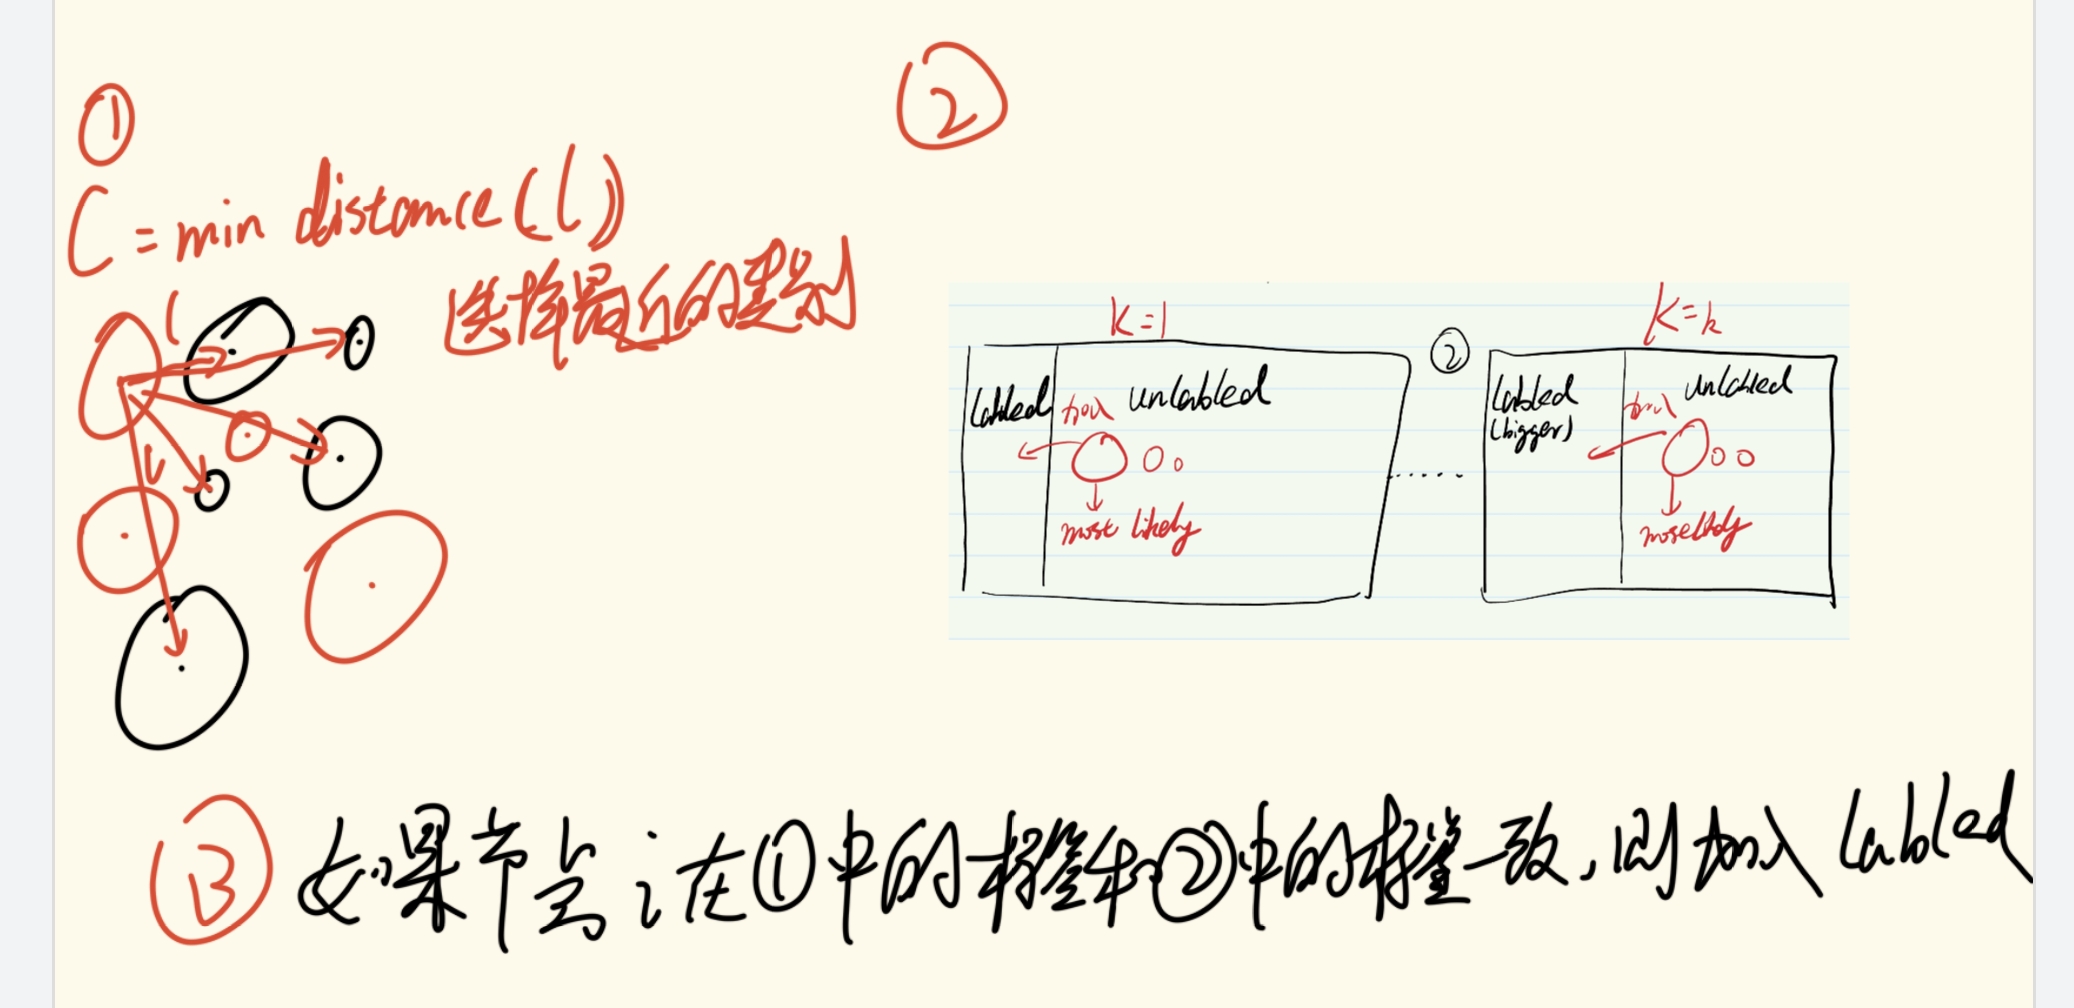 ①
C = min distance(l)
选择最近的类别
l
l
②
K=1
labled
unlabled
most likely
②
K=k
Labled
(bigger)
unlabled
③ 如果节点 i 在①中的标签和②中的标签一致,则加入 labled